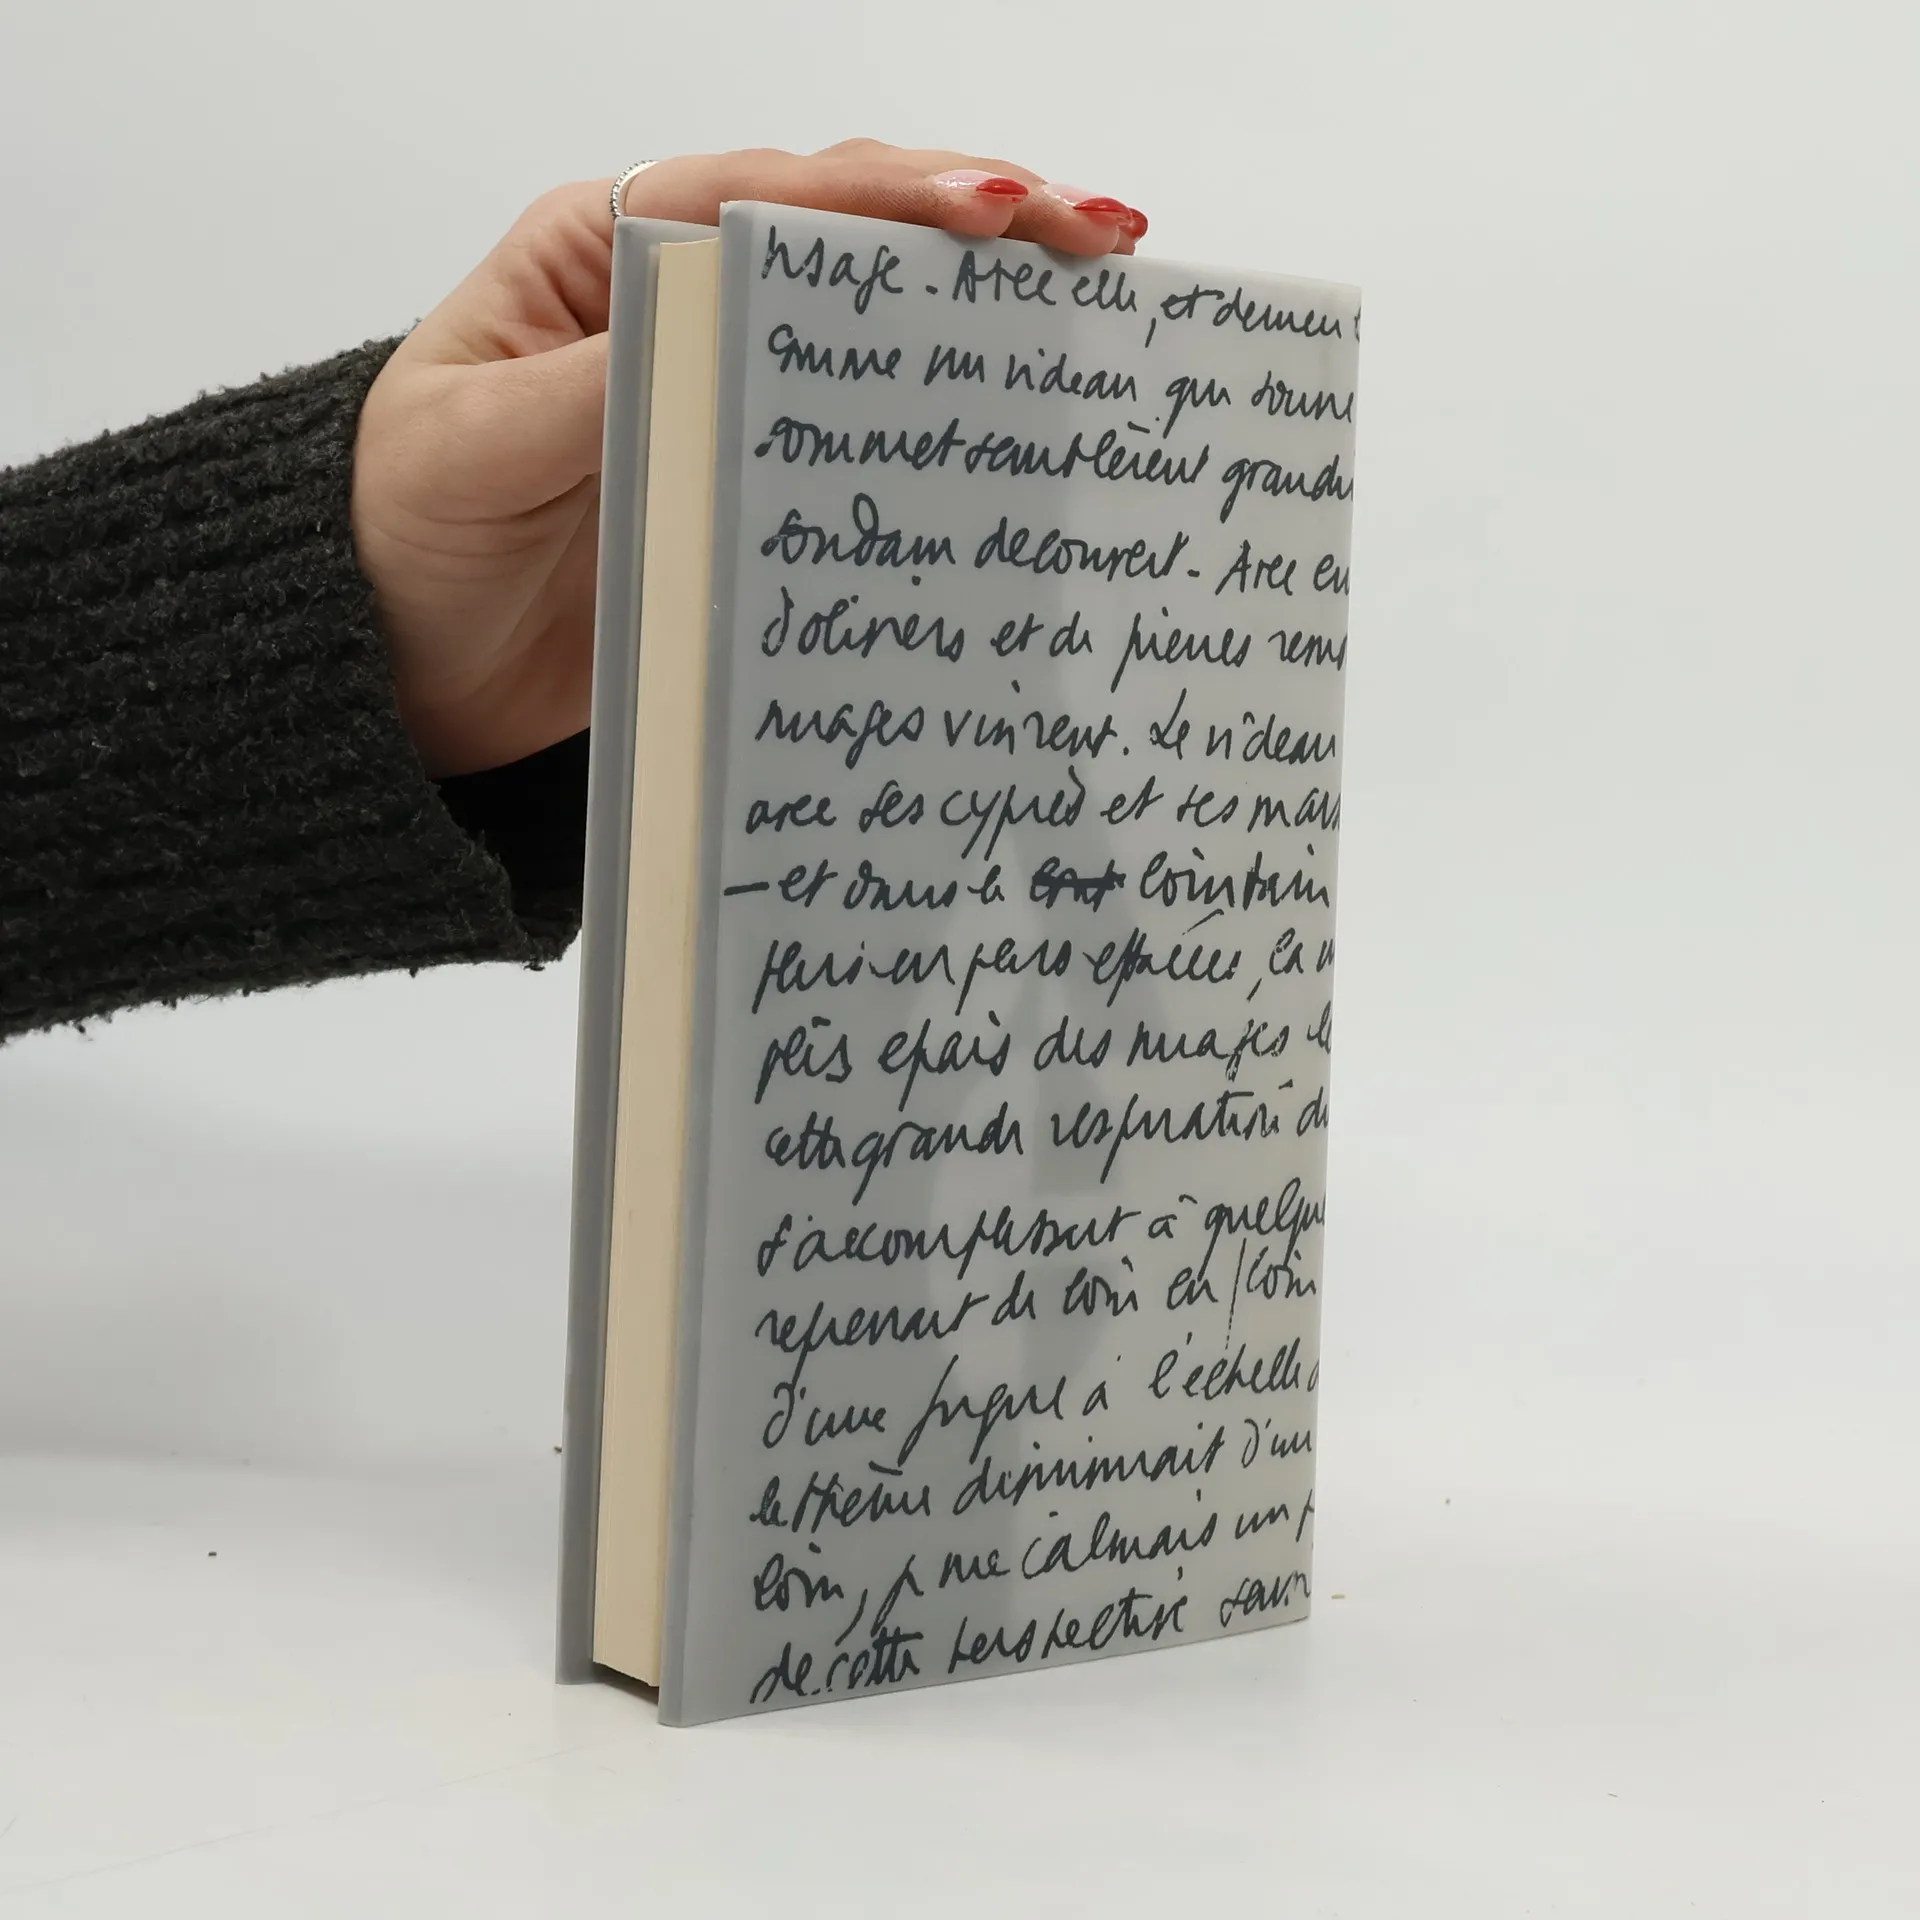 visage. Avec elle, et
comme un rideau qui
sommet semblèrent
soudain découvert. Avec
d'oliviers et de pierres
nuages vinrent. Le rideau
avec ses cyprès et ses
— et dans le lointain
effacées, la
plis épais des nuages
cette grande respiration du
s'accomplissait à
reprenait de loin en loin
d'une fugue à l'échelle
le thème diminuait d'un
loin, je me calmais un
de cette perspective